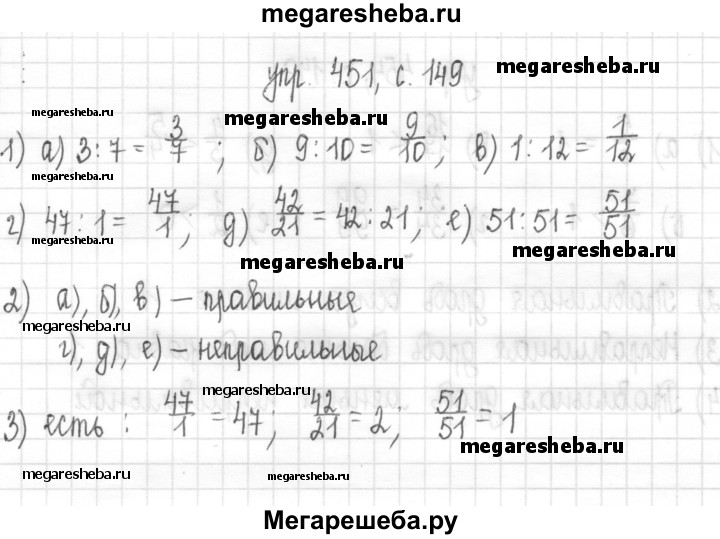 megaresheba.ru
упр. 451, с. 149 megaresheba.ru
megaresheba.ru megaresheba.ru
1) а) 3:7 = 3/7 ; б) 9:10 = 9/10 ; в) 1:12 = 1/12
megaresheba.ru
г) 47:1 = 47/1 ; д) 42/21 = 42:21 ; е) 51:51 = 51/51
megaresheba.ru megaresheba.ru megaresheba.ru
2) а), б), в) – правильные
megaresheba.ru
г), д), е) – неправильные
megaresheba.ru
3) есть : 47/1 = 47 ; 42/21 = 2 ; 51/51 = 1
megaresheba.ru
megaresheba.ru megaresheba.ru
Мегарешеба.ру